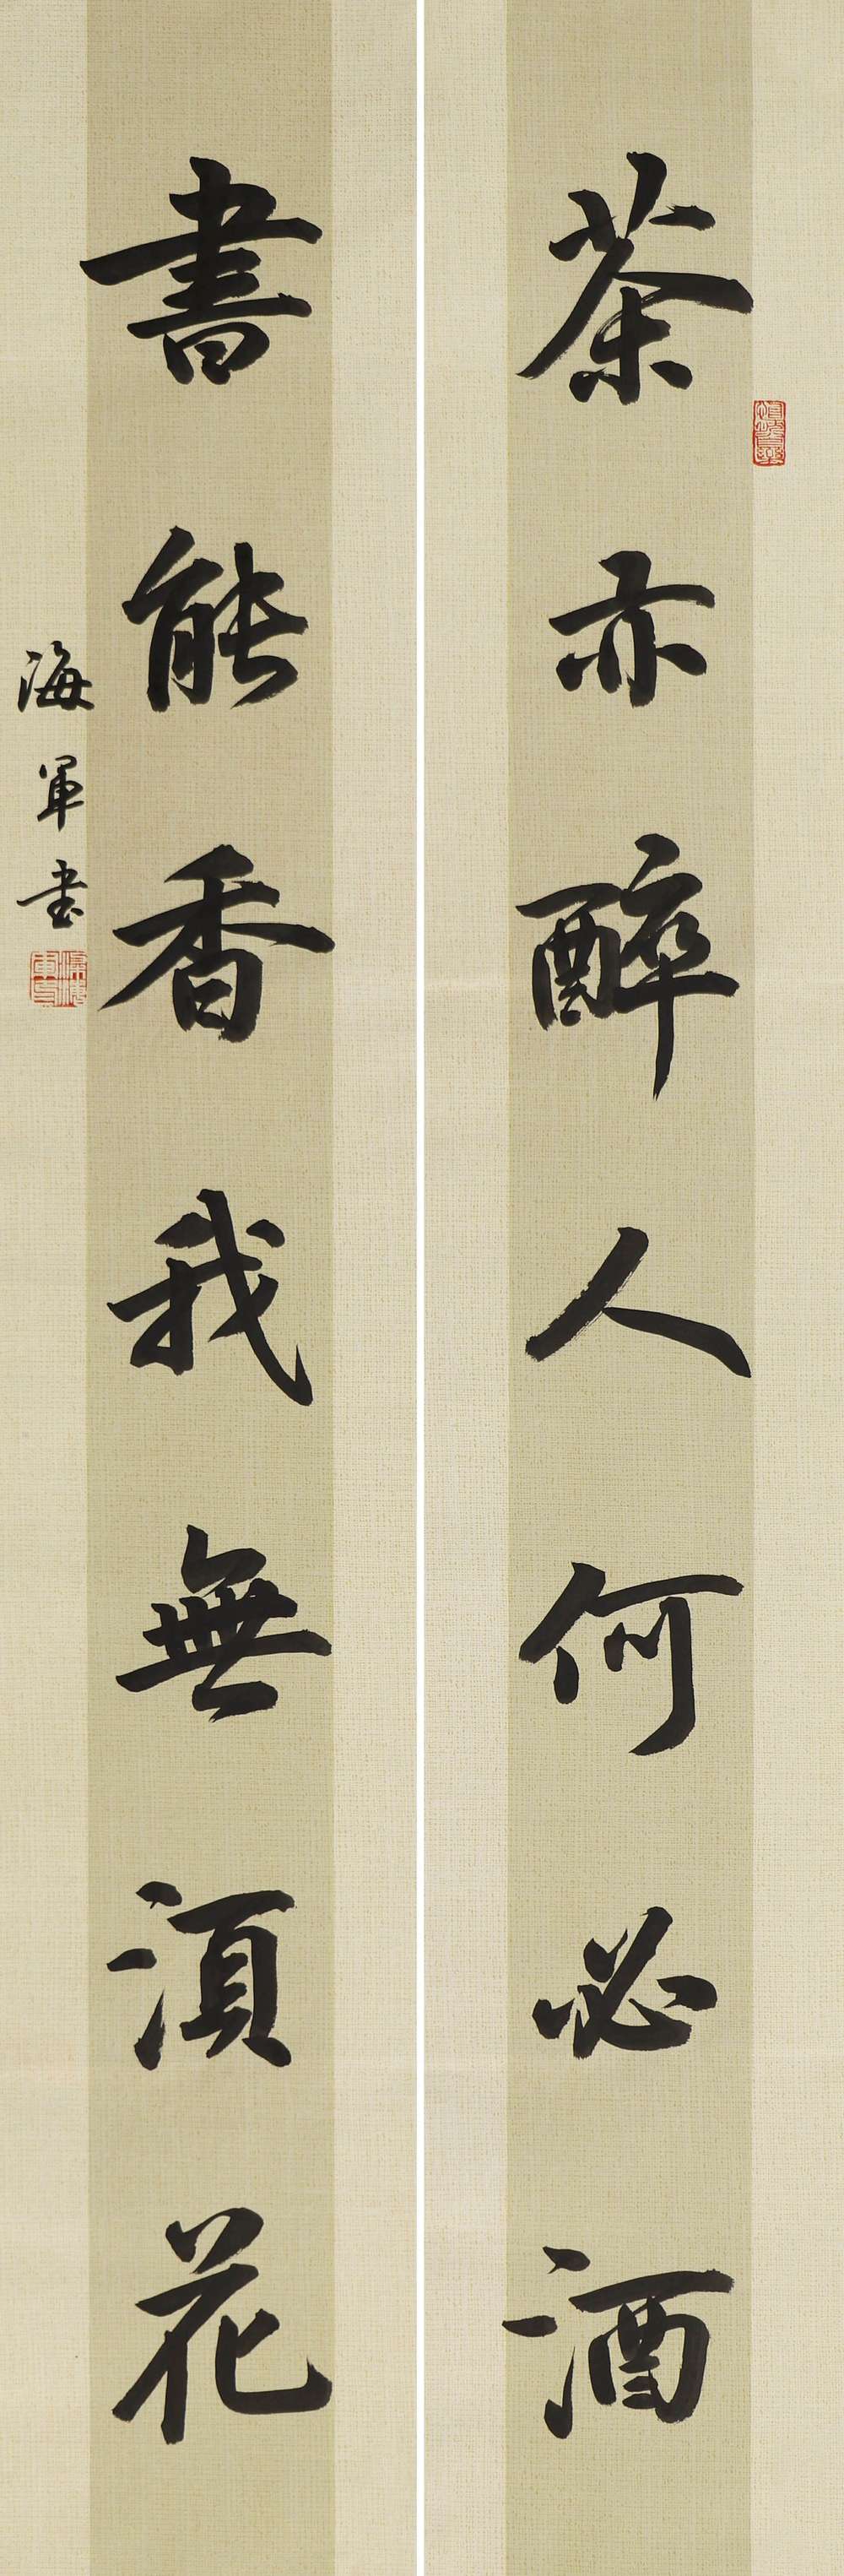 茶亦醉人何必酒
書能香我無須花
海軍书